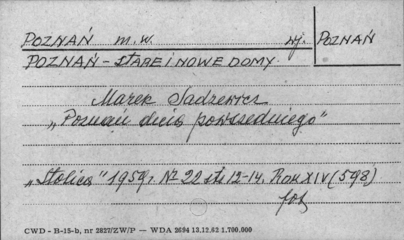 POZNAŃ m.w. wj. POZNAŃ
POZNAŃ - STARE I NOWE DOMY
Marek Sadzewicz
„Poznań dnia powszedniego"
„Stolica" 1959r. Nr 22 str. 12-14. Rok XIV (598)
fot
CWD - B-15-b, nr 2827/ZW/P — WDA 2694 13.12.62 1.700.000